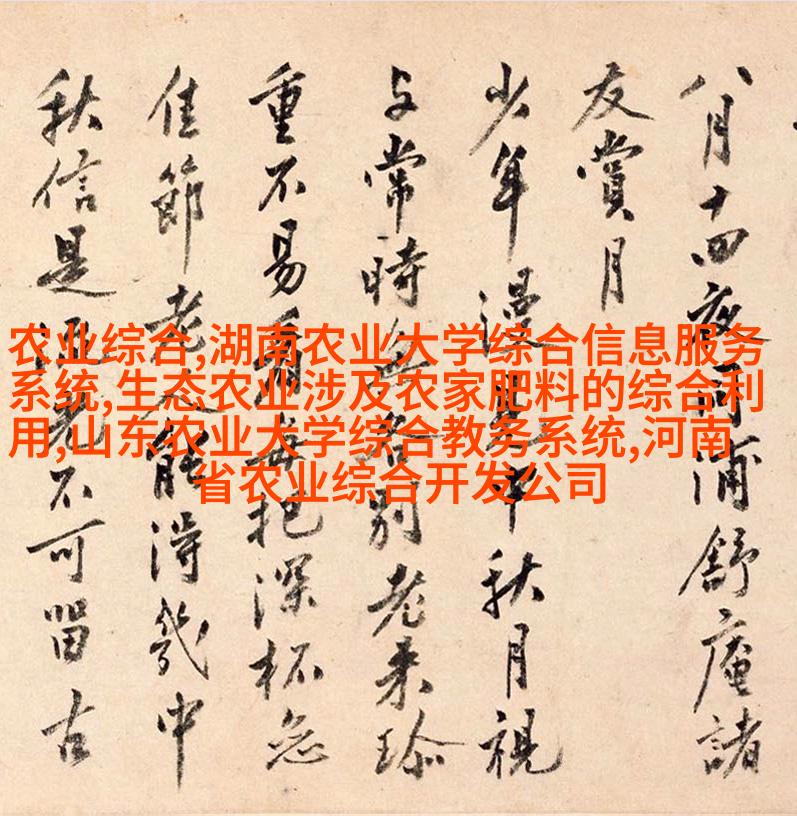 八月十四夜浦舒庵諸
友賞月
少年漫見中秋月視
与常時無各別老来珎
重不易看每把深杯急
佳節老人能得幾中
秋信是流光不可留古
农业综合,湖南农业大学综合信息服务
系统,生态农业涉及农家肥料的综合利
用,山东农业大学综合教务系统,河南
省农业综合开发公司